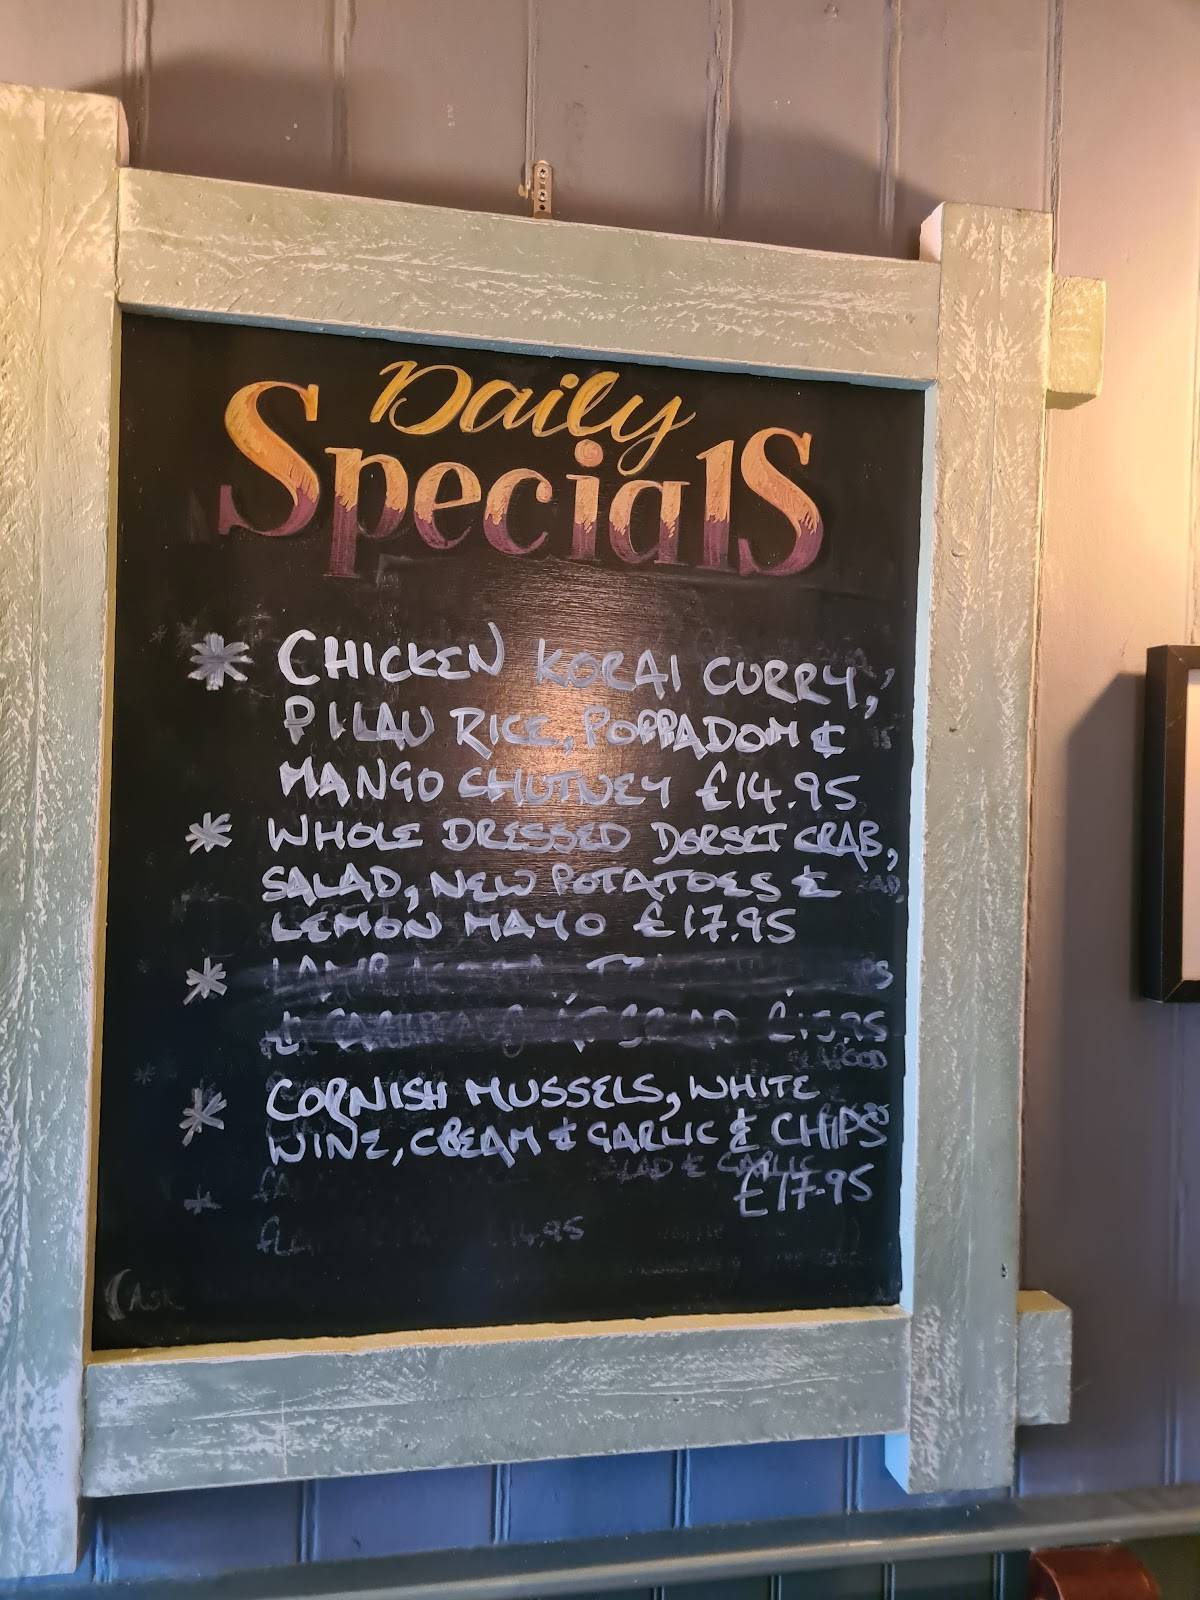 Daily
Specials
* CHICKEN KORAI CURRY,
PILAU RICE, POPPADOM &
MANGO CHUTNEY £14.95
* WHOLE DRESSED DORSET CRAB,
SALAD, NEW POTATOES &
LEMON MAYO £17.95
*
& £15.95
* CORNISH MUSSELS, WHITE
WINE, CREAM & GARLIC & CHIPS
SALAD & GARLIC
£17.95
14.95
(Ask